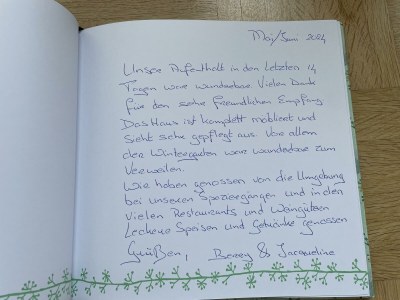 Mai/Juni 2024
Unser Aufenthalt in den Letzten 14
Tagen ware wunderbar Vielen Dank
für den sehr freundlichen Empfang
Das Haus ist komplett mobliert und
Sieht sehr gepflegt aus. Vor allem
der Wintergarten ware wunderbar zum
Verweilen.
Wir haben genossen von die Umgebung
bei unseren Spaziergängen und in den
Vielen Restaurants und Weingüter
Leckere Speisen und Getränke genossen
Grüßen,
& Jacqueline